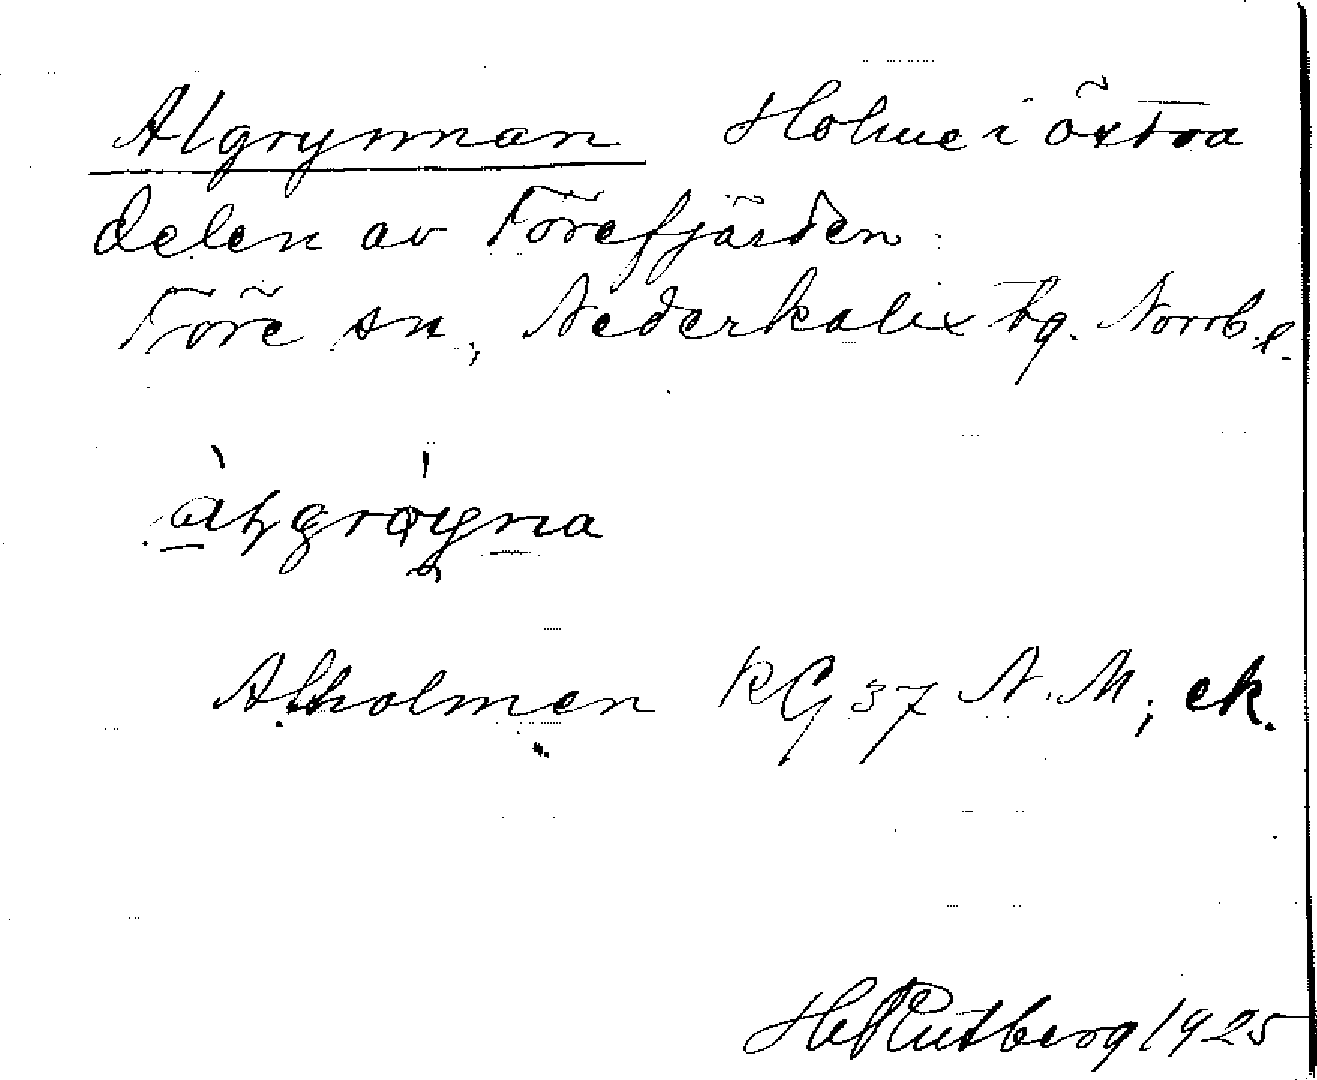 Algrynnan Holme i östra
delen av Törefjärden.
Töre sn, Nederkalix tg. Norrb.l.
Alholmen RG 37 N.M; ek.
H Rutberg 1925